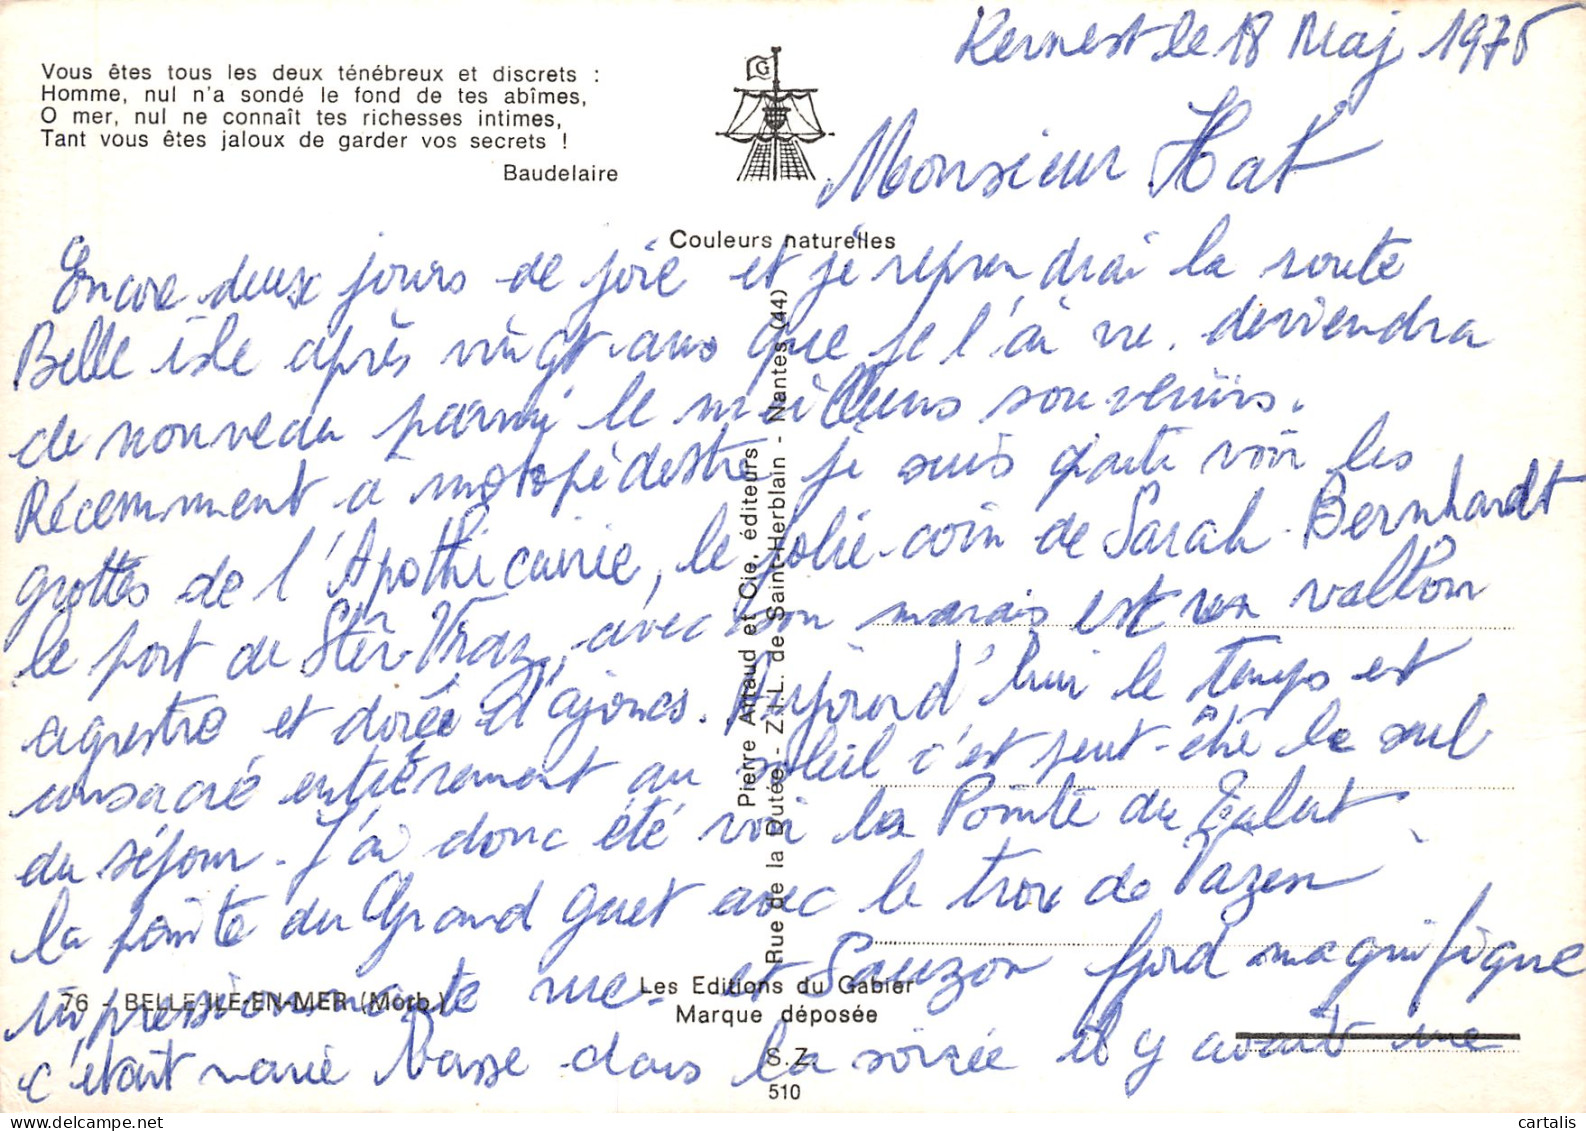 Kernest le 18 Maj 1976
Vous êtes tous les deux ténébreux et discrets :
Homme, nul n'a sondé le fond de tes abîmes,
O mer, nul ne connaît tes richesses intimes,
Tant vous êtes jaloux de garder vos secrets !
Baudelaire
G
Monsieur Hat
Couleurs naturelles
Encore deux jours de joie et je reprendrai la route
Belle isle après vingt ans que je l'ai vu. deviendra
de nouveau parmi le meilleurs souvenirs.
Récemment à motopédestre je suis parti voir les
grottes de l'Apothicairie, le jolie coin de Sarah Bernhardt
le port de Ster-Vraz, avec son marais est un vallon
agrestre et dorée d'ajoncs. Aujourd'hui le temps est
consacré entièrement au soleil c'est peut-être le seul
du séjour. J'ai donc été voir la Pointe du Talut
la pointe du Grand Guet avec le trou de Vazen
impressionnante vue. et Sauzon fjord magnifique
c'était marée basse dans la soirée il y avait une
Pierre Artaud et Cie, éditeurs
Rue de la Dutée - Z.I.L. de Saint-Herblain - Nantes (44)
76 - BELLE-ILE-EN-MER (Morb.)
Les Editions du Gabier
Marque déposée
S.Z.
510
cartalis